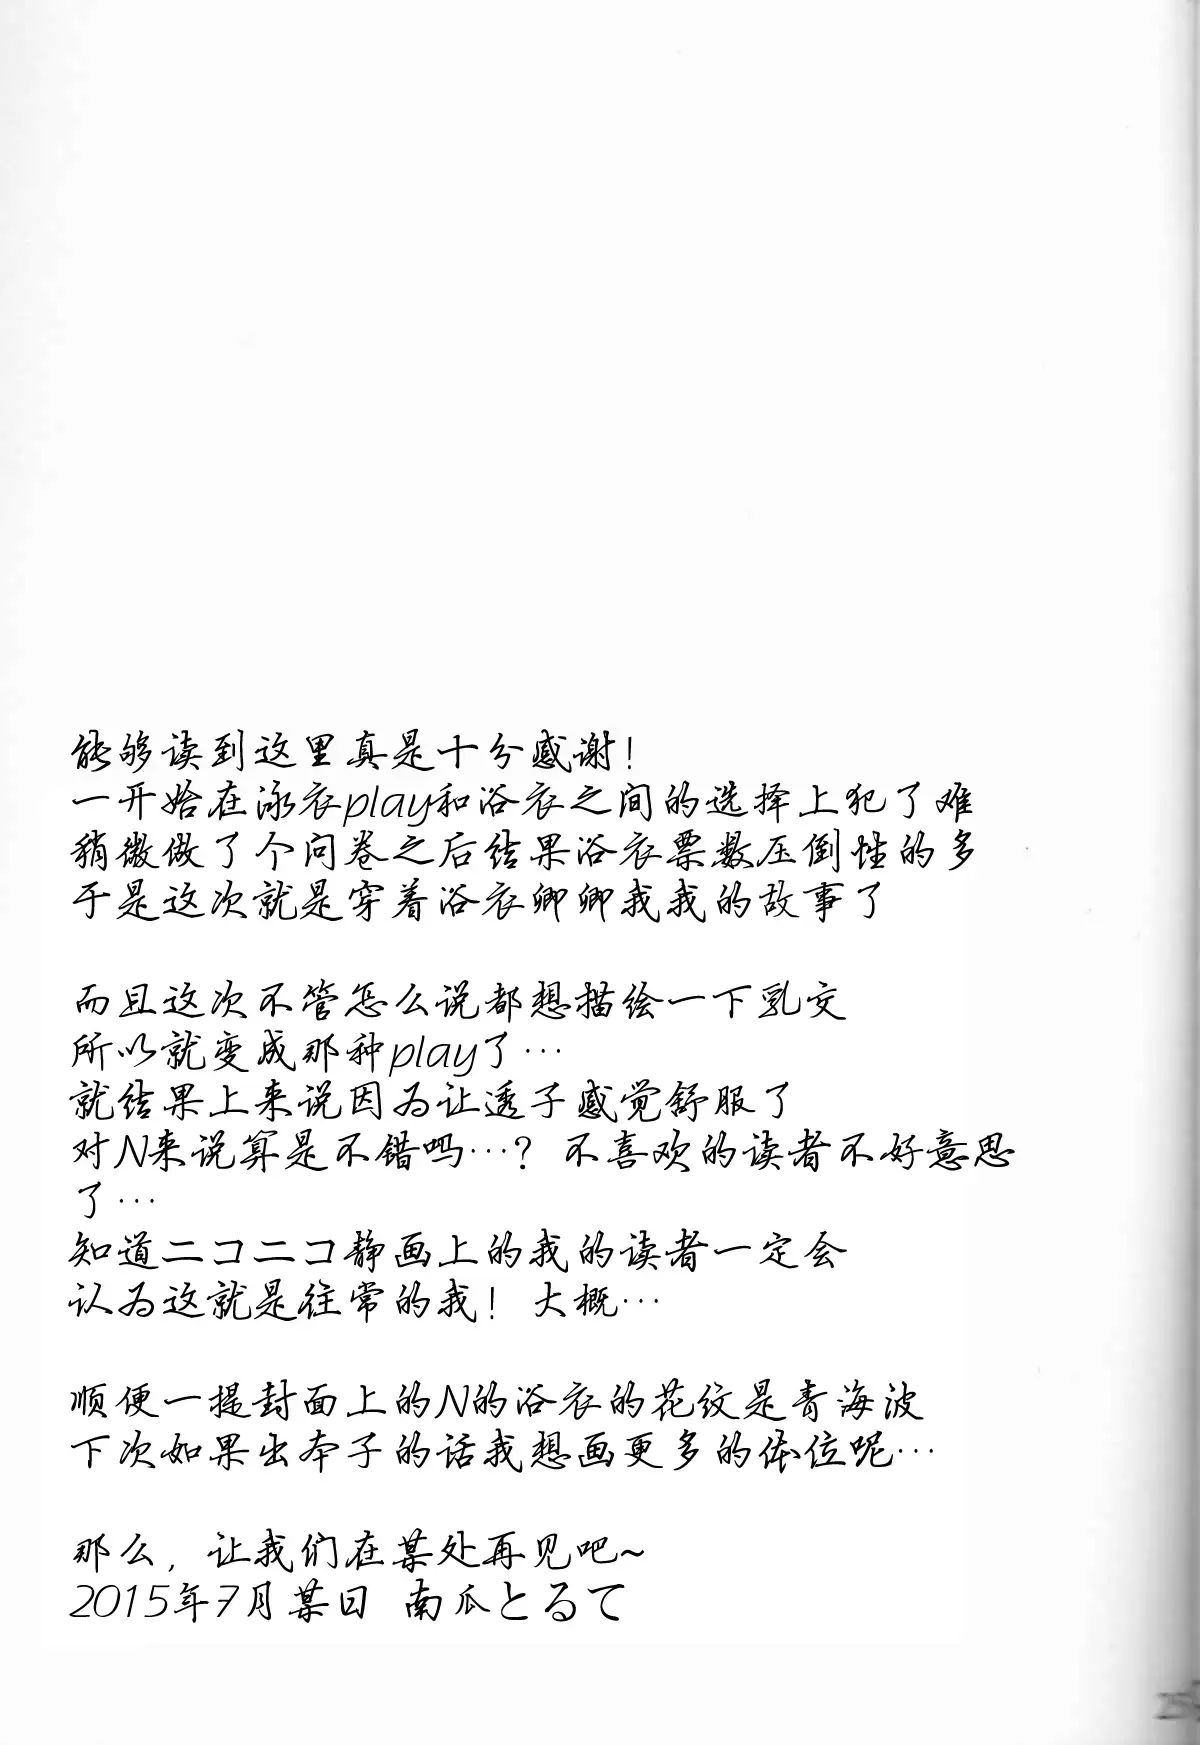 能够读到这里真是十分感谢！
一开始在泳衣play和浴衣之间的选择上犯了难
稍微做了个问卷之后结果浴衣票数压倒性的多
于是这次就是穿着浴衣卿卿我我的故事了
而且这次不管怎么说都想描绘一下乳交
所以就变成那种play了…
就结果上来说因为让透子感觉舒服了
对N来说算是不错吗…？不喜欢的读者不好意思
了…
知道ニコニコ静画上的我的读者一定会
认为这就是往常的我！大概…
顺便一提封面上的N的浴衣的花纹是青海波
下次如果出本子的话我想画更多的体位呢…
那么，让我们在某处再见吧~
2015年7月某日 南瓜とるて